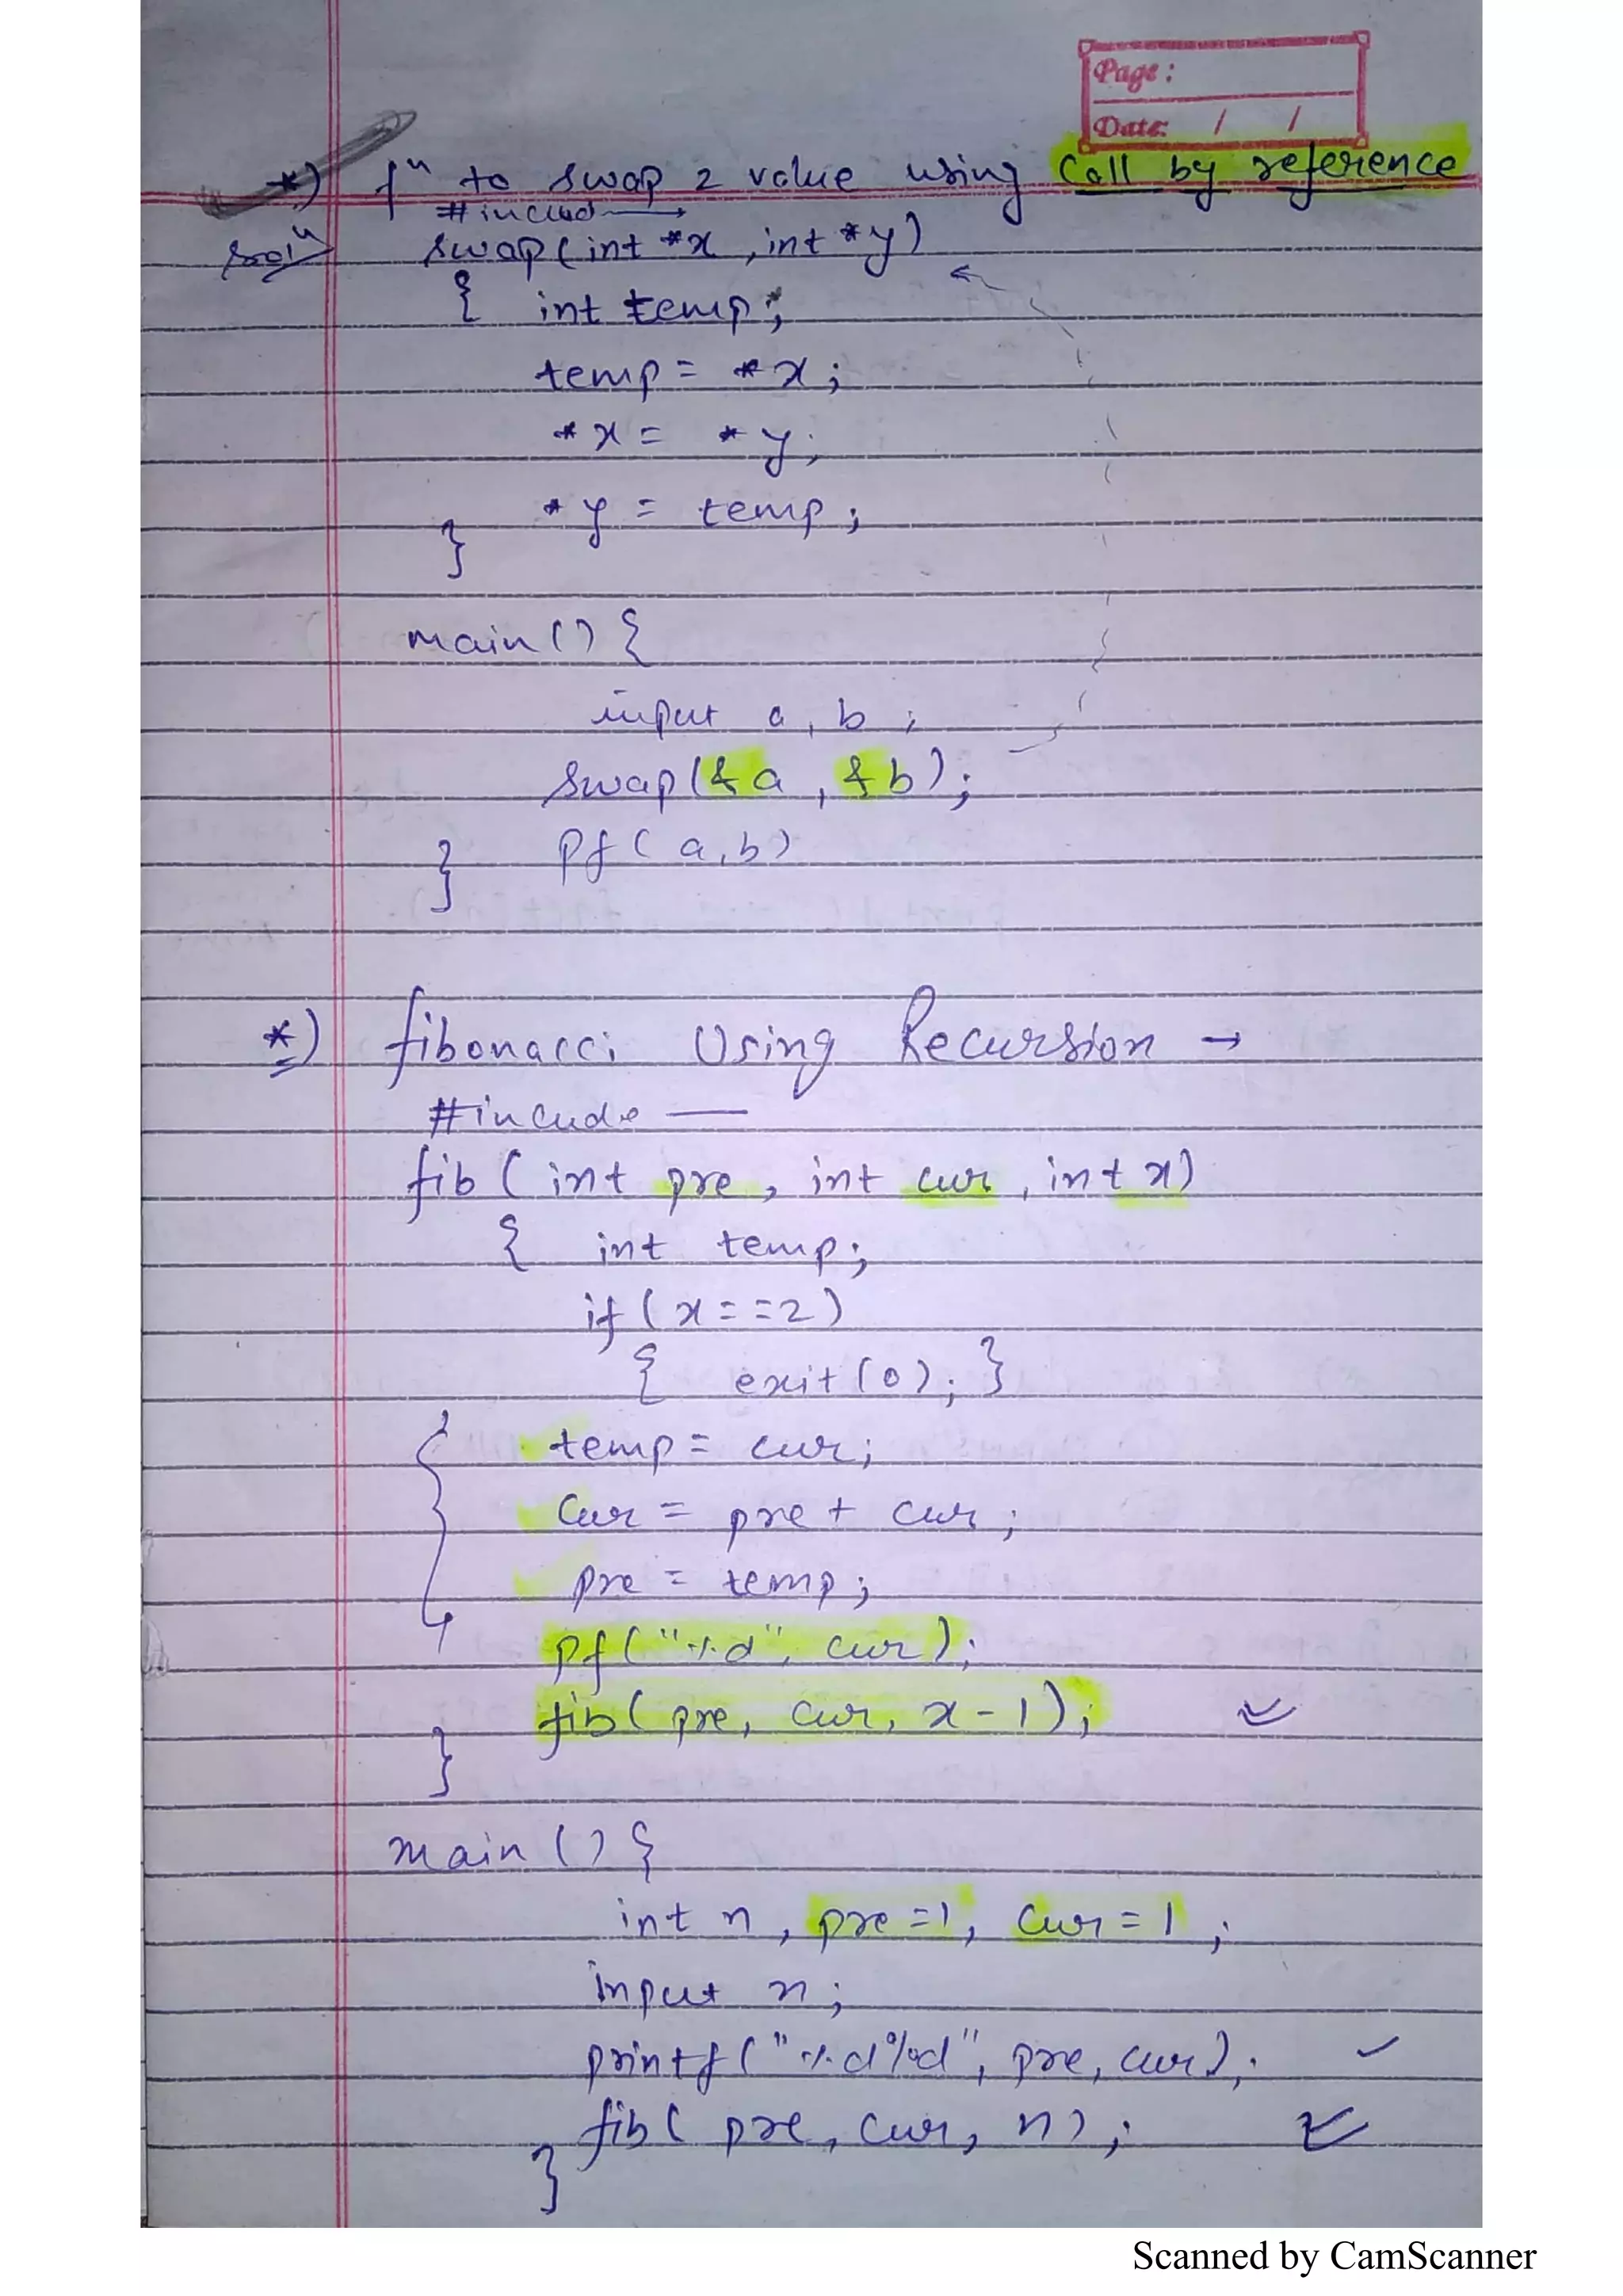 Page:
Date: / /
*) fⁿ to swap 2 value using Call by reference
#includ →
Solⁿ swap(int *x, int *y)
{ int temp;
temp = *x;
*x = *y;
*y = temp;
}
main(){
input a, b;
swap(&a, &b);
pf(a,b)
}
*) fibonacci Using Recursion →
#incude —
fib(int pre, int cur, int x)
{ int temp;
if(x==2)
{ exit(0); }
temp = cur;
Cur = pre + cur;
pre = temp;
pf("%d", cur);
fib(pre, cur, x-1);
}
main(){
int n, pre=1, cur=1;
input n;
printf("%d%d", pre, cur);
fib(pre, cur, n);
}
Scanned by CamScanner